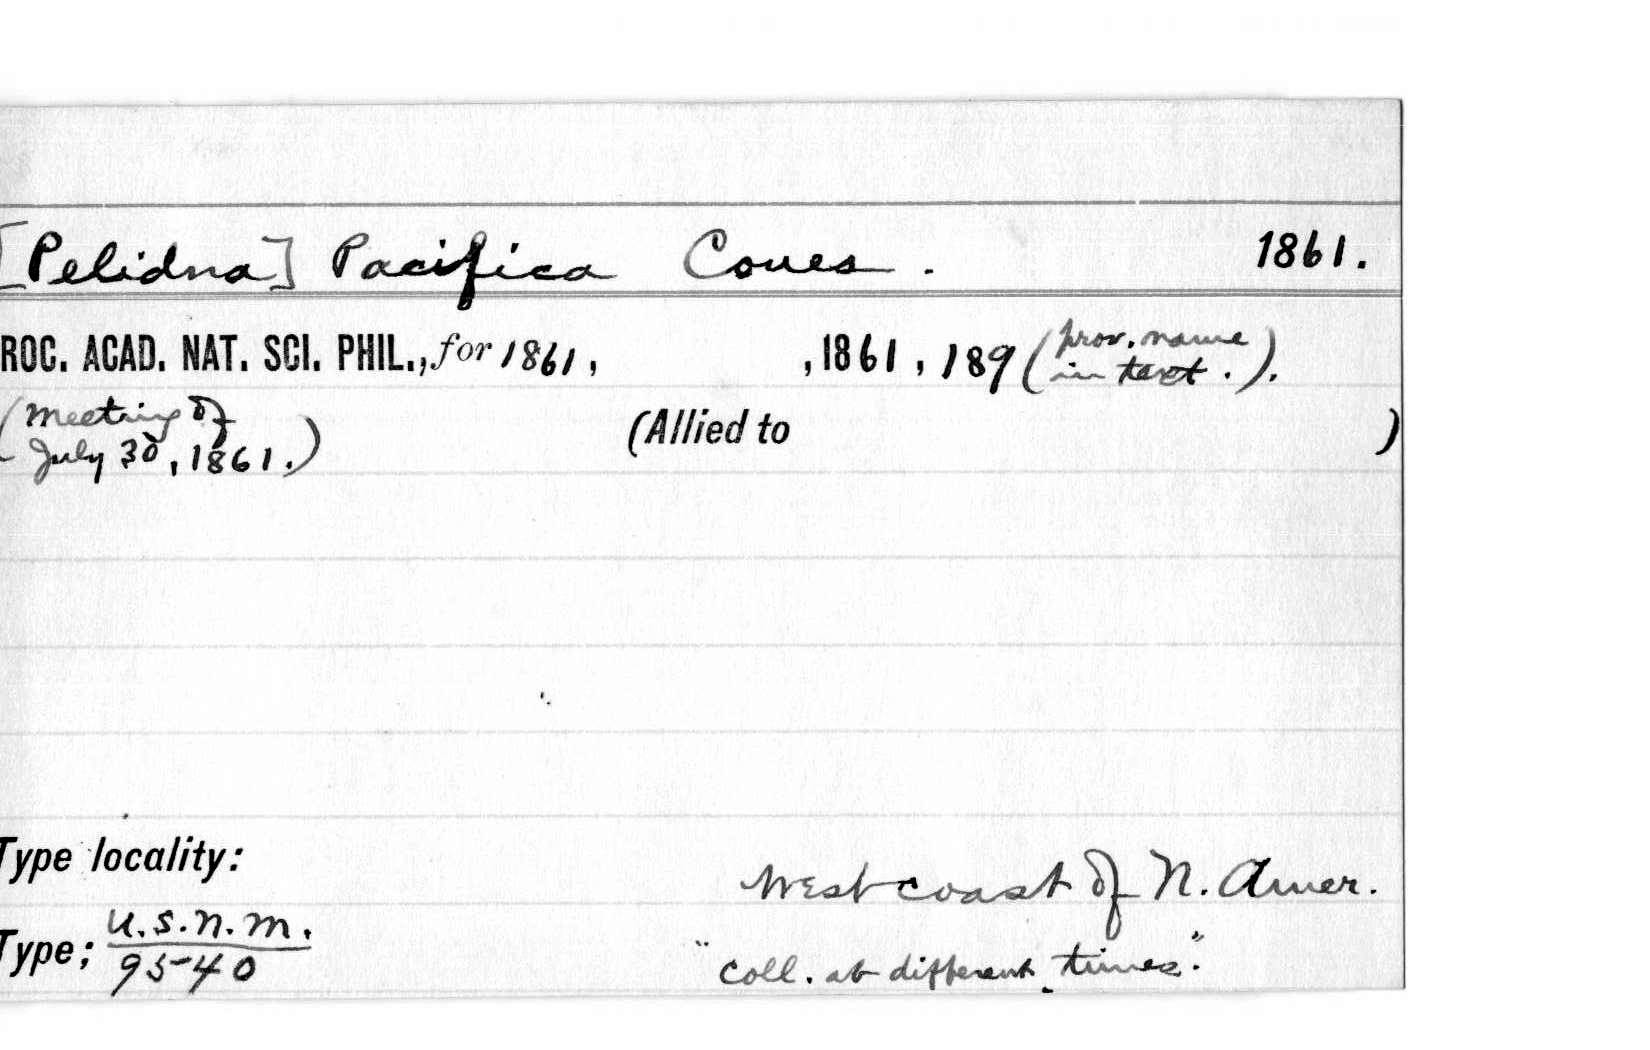 [Pelidna] Pacifica Coues. 1861.
ROC. ACAD. NAT. SCI. PHIL., for 1861, , 1861, 189 (prov. name in text.).
(Meeting of
July 30, 1861.) (Allied to )
Type locality:
West coast of N. Amer.
Type; U.S.N.M.
9540
"coll. at different times."